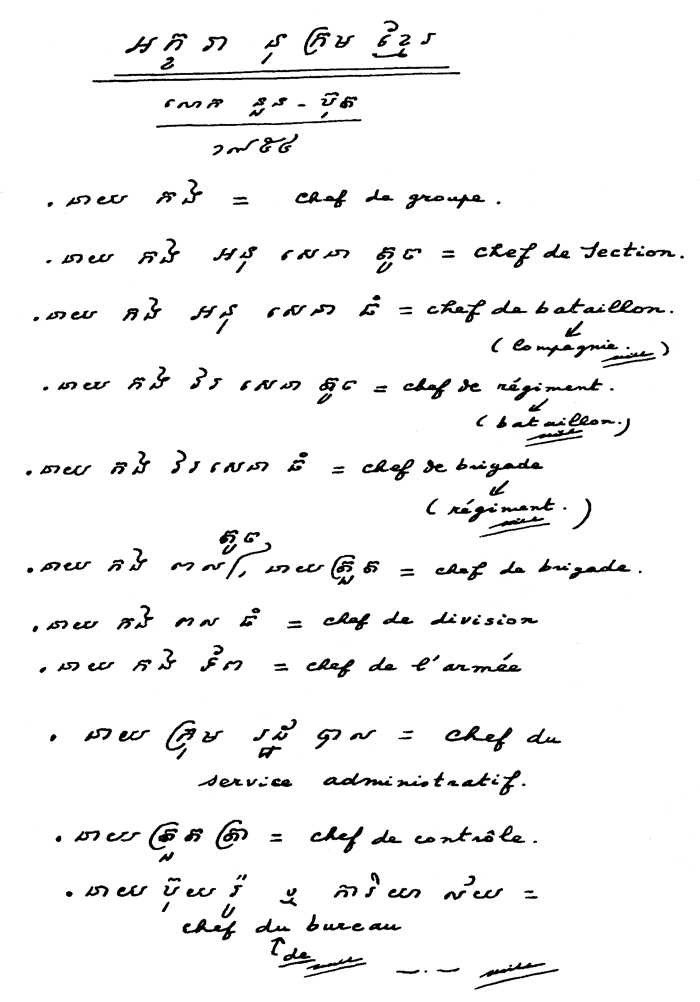 អក្ខរានុក្រម ខ្មែរ
លោក នួន - ប៊ុត
១៩៥៤
. នាយ កង = chef de groupe.
. នាយ កង អនុ សេនា តូច = chef de Section.
. នាយ កង អនុ សេនា ធំ = chef de bataillon.
(Compagnie.)
. នាយ កង វរ សេនា តូច = chef de régiment.
(bataillon.)
. នាយ កង វរ សេនា ធំ = chef de brigade
(régiment.)
តូច
. នាយ កង ពល/, នាយ ត្រួត = chef de brigade.
. នាយ កង ពល ធំ = chef de division
. នាយ កង ទ័ព = chef de l'armée
. នាយ ក្រុម រដ្ឋ បាល = chef du
service administratif.
. នាយ ត្រួត ត្រា = chef de contrôle.
. នាយ ប៊ុយរ៉ូ ឬ ការិយាល័យ =
chef du bureau
de